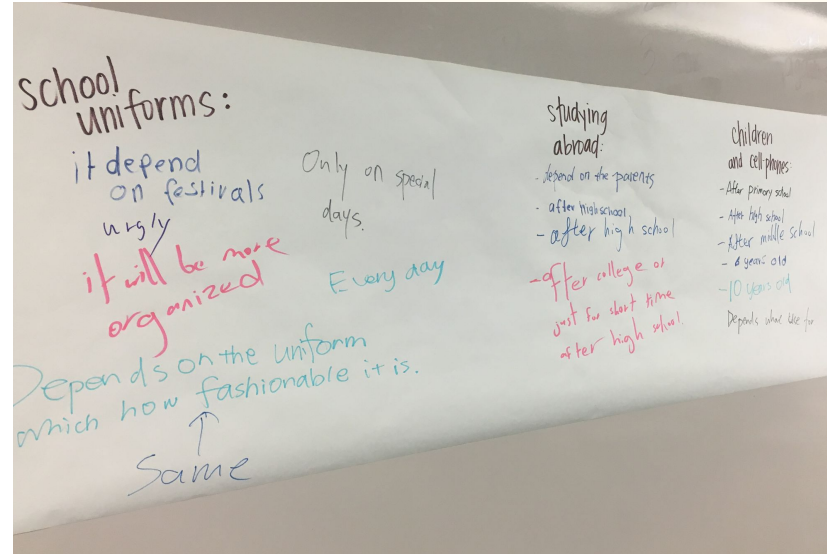 school
uniforms:
it depend
on festivals
urgly
it will be more
organized
Only on special
days.
Every day
Depends on the uniform
which how fashionable it is.
Same
studying
abroad:
- depend on the parents
- after high school
- after high school
- after college or
just for short time
after high school.
children
and cell-phones:
- After primary school
- After high school
- After middle school
years old
- 10 years old
Depends what use for